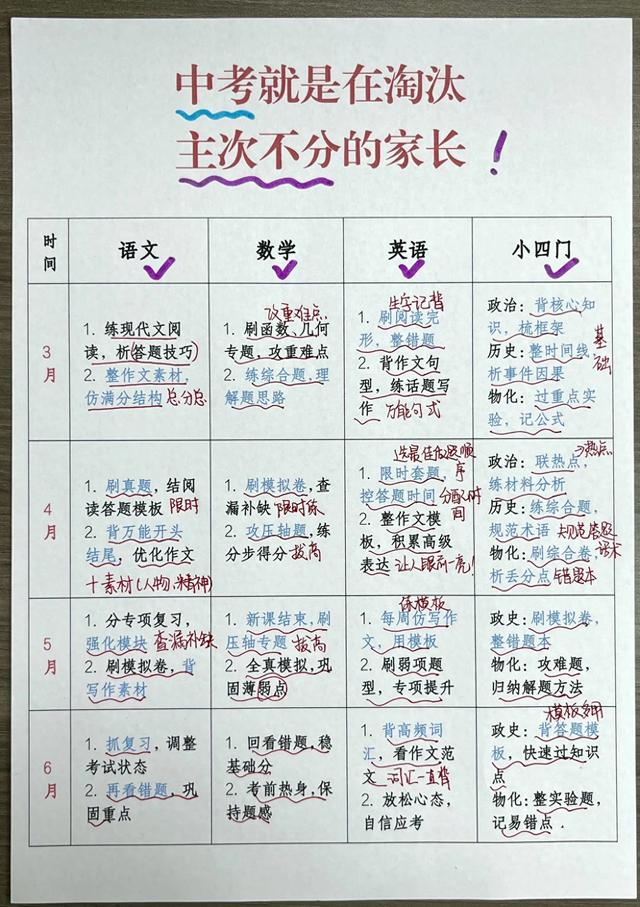 中考就是在淘汰
主次不分的家长!
时间
语文
数学
英语
小四门
3月
1. 练现代文阅
读，析答题技巧
2. 整作文素材，
仿满分结构 总分总
攻重难点
1. 刷函数、几何
专题，攻重难点
2. 练综合题，理
解题思路
生字记背
1. 刷阅读完
形，整错题
2. 背作文句
型，练话题写
作 万能句式
政治：背核心知
识，梳框架
历史：整时间线，
析事件因果
物化：过重点实
验，记公式
基础
4月
1. 刷真题，结阅
读答题模板 限时
2. 背万能开头
结尾，优化作文
十素材(人物、精神)
1. 刷模拟卷，查
漏补缺 限时练
2. 攻压轴题，练
分步得分 拔高
选最佳做题顺序
1. 限时套题，
控答题时间 分配时间
2. 整作文模
板，积累高级
表达 让人眼前一亮!
热点
政治：联热点，
练材料分析
历史：练综合题，
规范术语 规范答题话术
物化：刷综合卷，
析丢分点 错题本
5月
1. 分专项复习，
强化模块 查漏补缺
2. 刷模拟卷，背
写作素材
1. 新课结束，刷
压轴专题 拔高
2. 全真模拟，巩
固薄弱点
练模板
1. 每周仿写作
文，用模板
2. 刷弱项题
型，专项提升
政史：刷模拟卷，
整错题本
物化：攻难题，
归纳解题方法
6月
1. 抓复习，调整
考试状态
2. 再看错题，巩
固重点
1. 回看错题，稳
基础分
2. 考前热身，保
持题感
1. 背高频词
汇，看作文范
文 词汇一直背
2. 放松心态，
自信应考
模板多用
政史：背答题模
板，快速过知识
点
物化：整实验题，
记易错点.